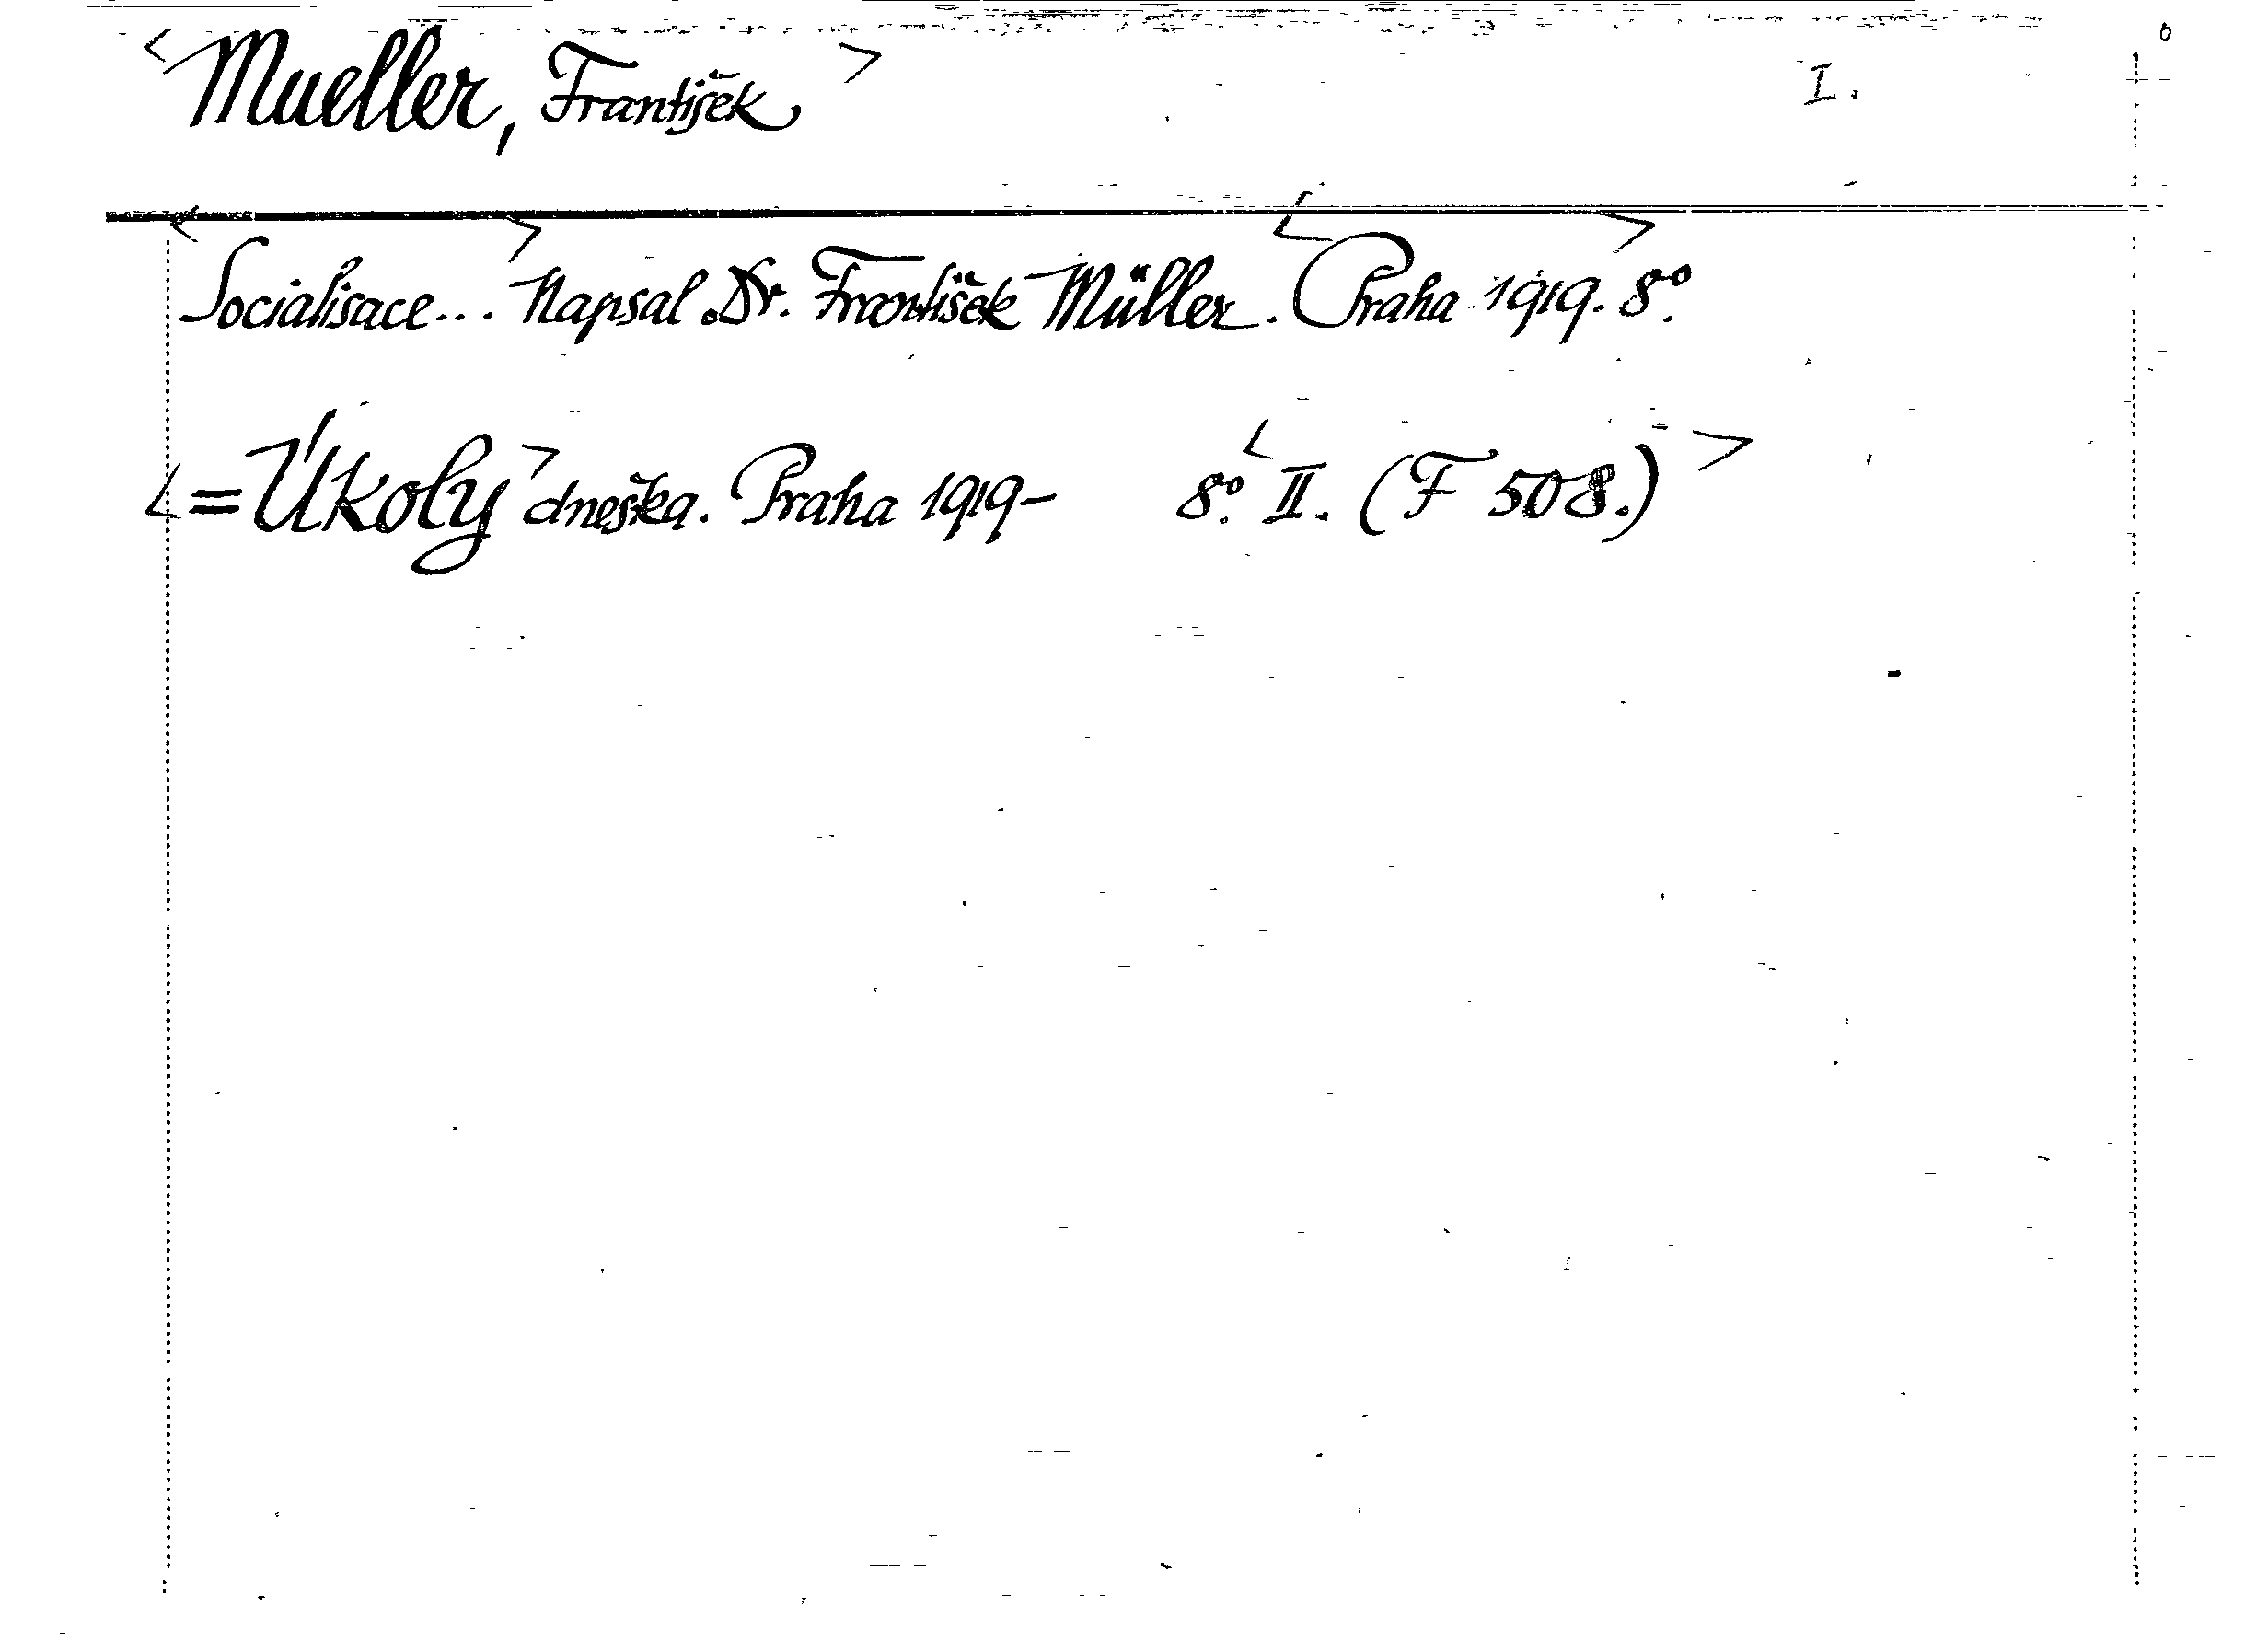 <Mueller, František> I.
<Socialisace...> Napsal Dr. František Müller. <Praha 1919.> 8°.
<=Úkoly> dneška. Praha 1919- 8°. <II. (F 508.)>